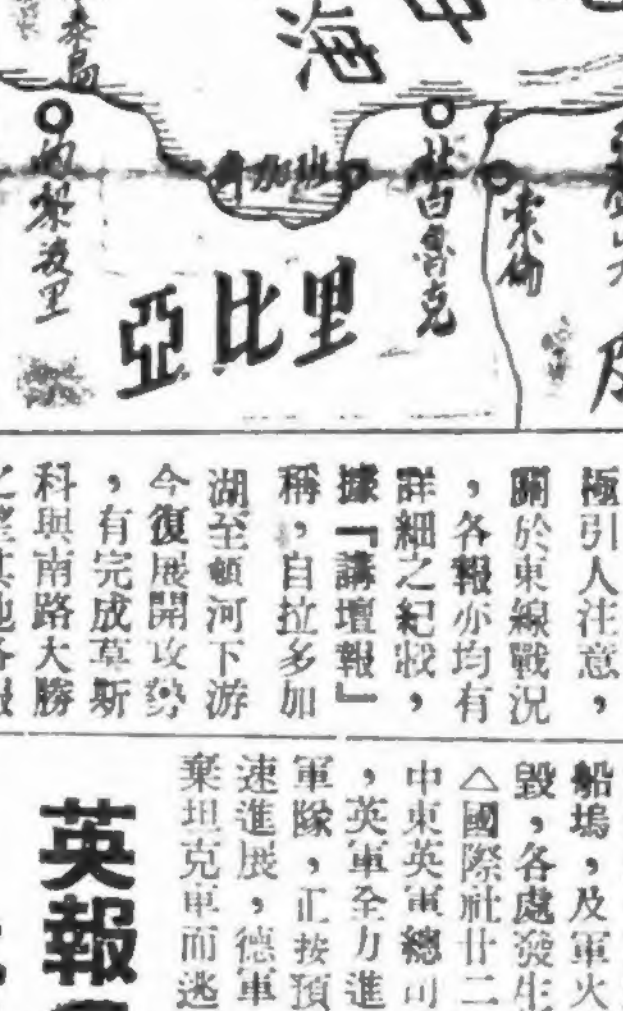 海
班加齊
杜白魯克
索倫
的黎波里
里比亞
極引人注意，
關於東線戰況
，各報亦均有
詳細之紀載，
據『講壇報』
稱，自拉多加
湖至頓河下游
今復展開攻勢
，有完成莫斯
科與南路大勝
船塢，及軍火
毀，各處發生
△國際社廿二
中東英軍總司
，英軍全力進
軍隊，正按預
速進展，德軍
棄坦克車而逃
英報